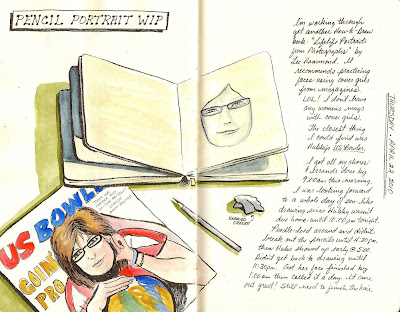 PENCIL PORTRAIT WIP
I'm working through
yet another How-to-Draw
book - "Lifelike Portraits
from Photographs" by
Lee Hammond. It
recommends practicing
faces using cover girls
from magazines.
LOL! I don't have
any women's mags
with cover girls.
The closest thing
I could find was
Hubby's US Bowler.
I got all my chores
& errands done by
9:00am this morning.
I was looking forward
to a whole day of
drawing since Hubby wasn't
due home until 10:00 pm tonight.
around and didn't
break out the pencils until 4:30pm.
Then Hubs showed up early @ 5:00.
Didn't get back to drawing until
11:30pm. Got her face finished by
1:00am then called it a day. It came
out good! Still need to finish the hair.
THURSDAY APRIL 22, 2010
KNEADED
ERASER
US BOWLER
GOIN'
PRO